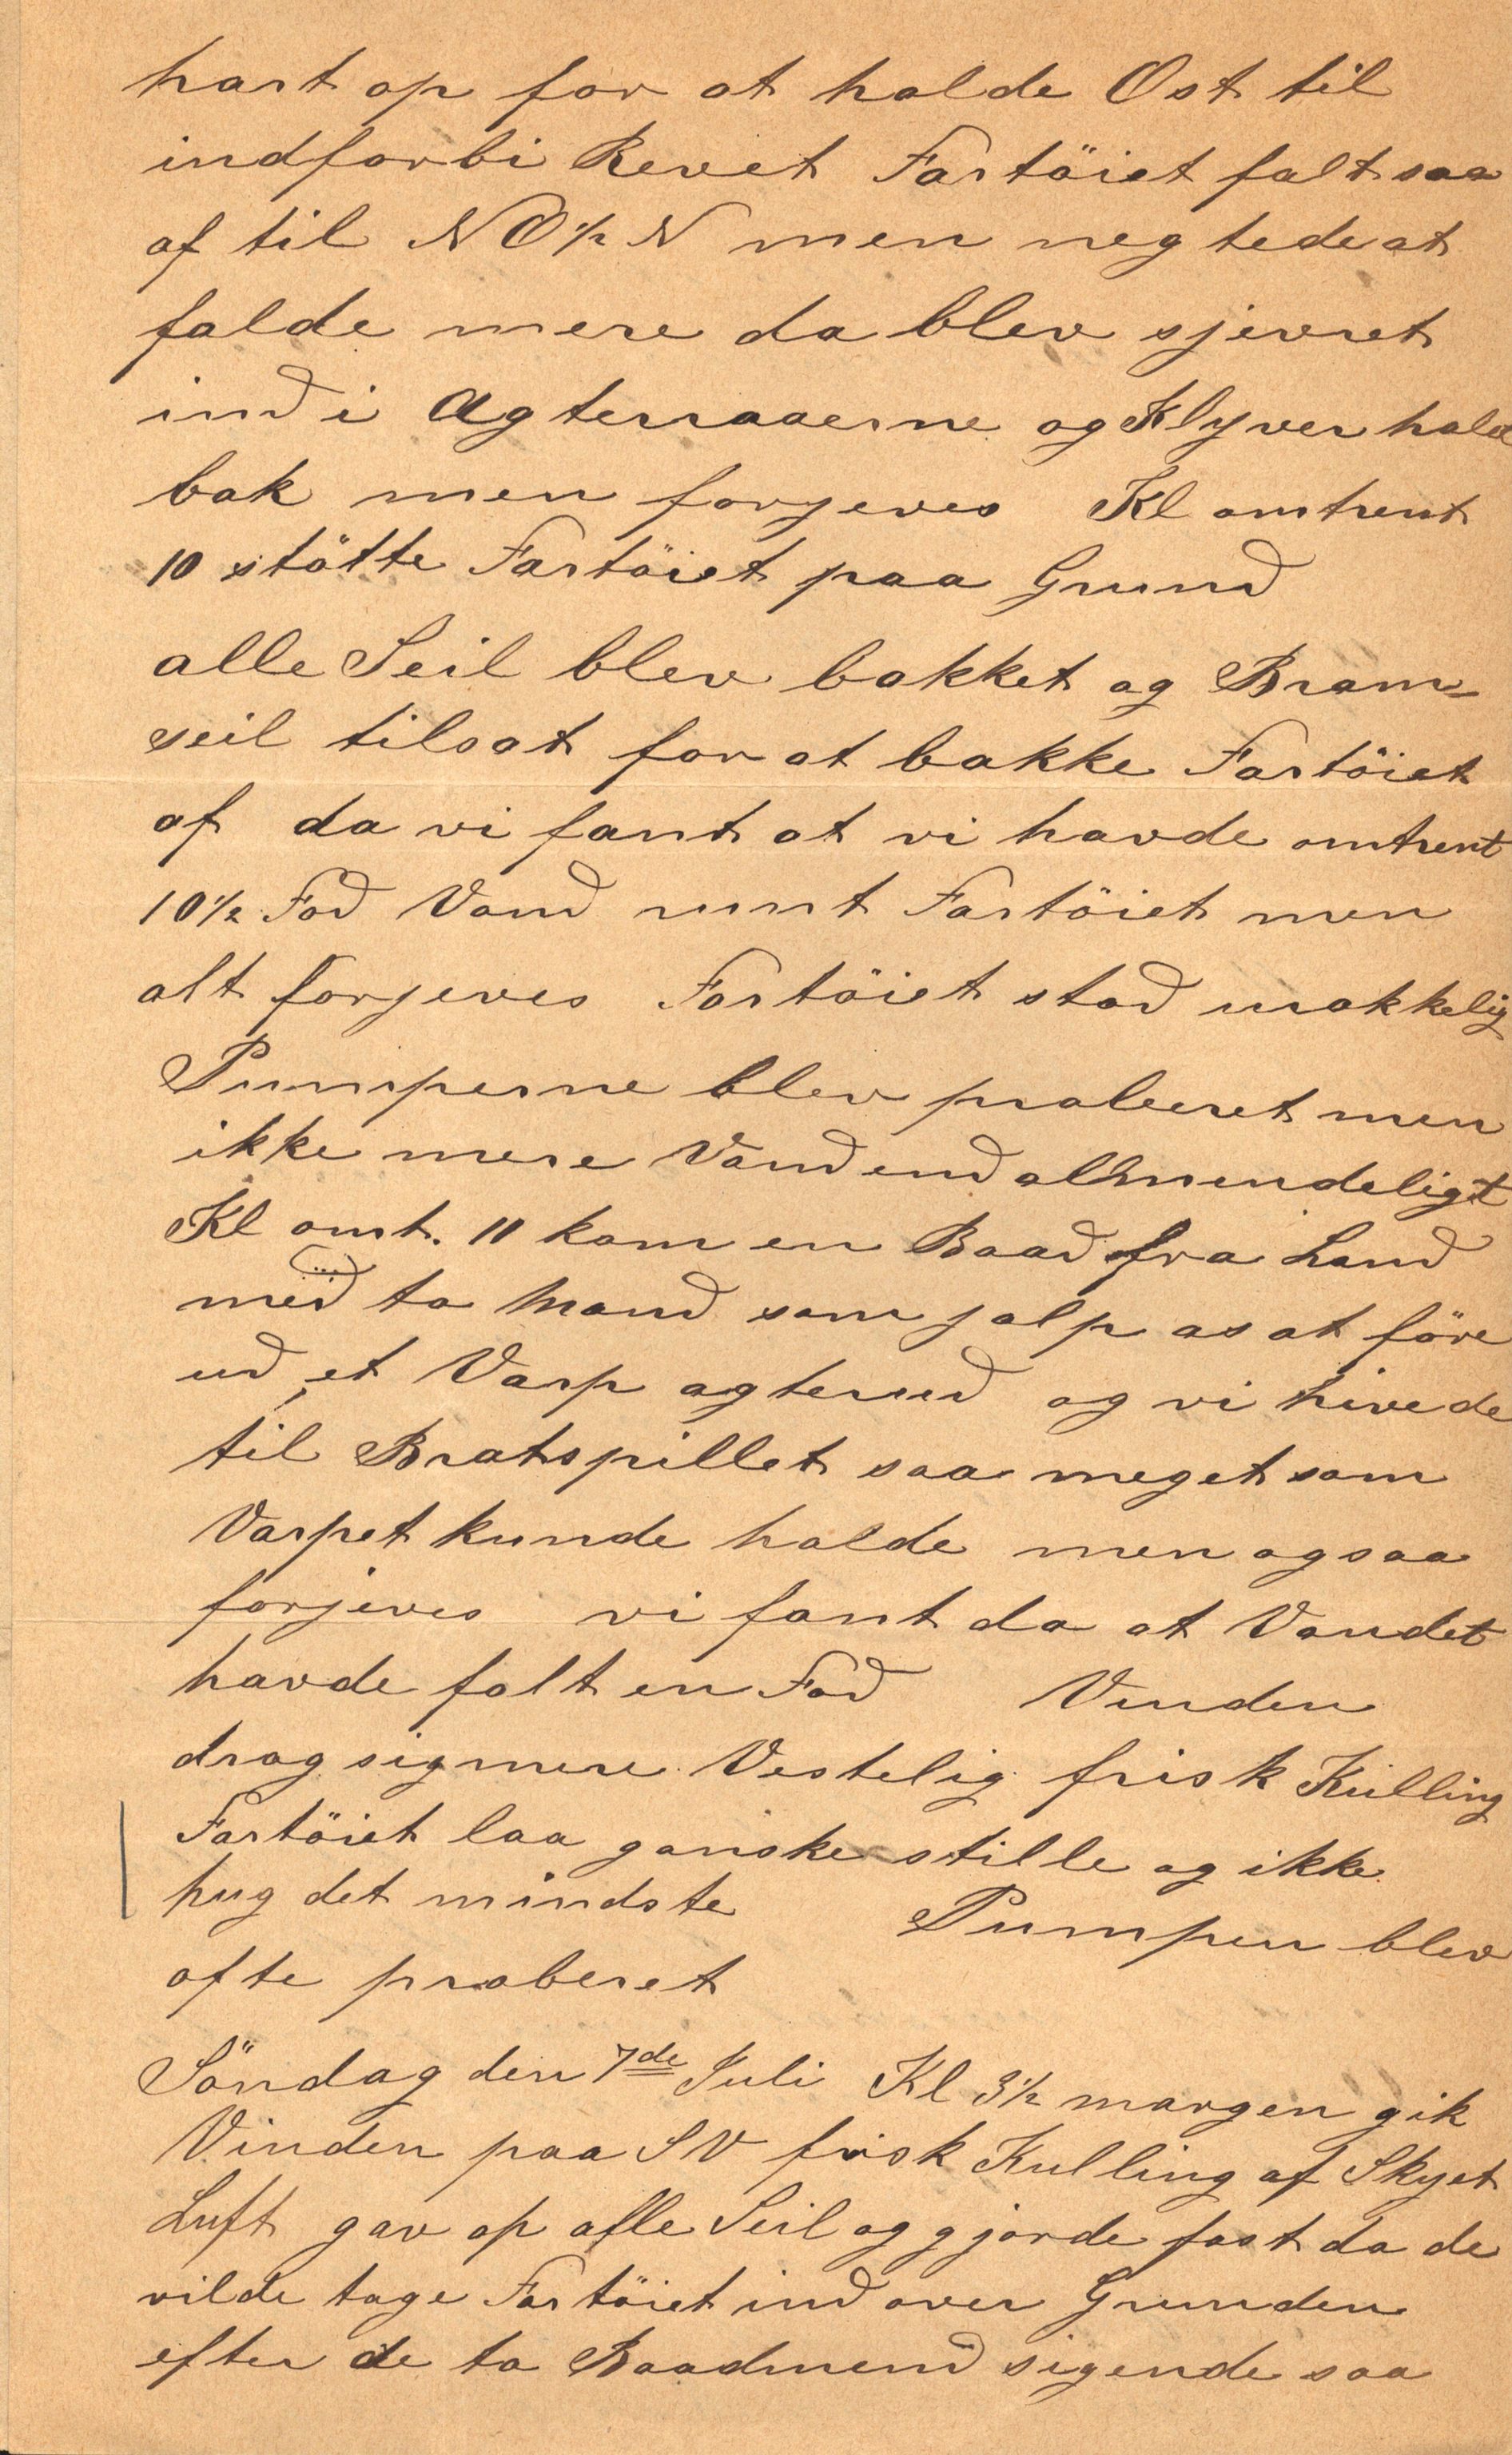 hart op for at holde Ost til
indforbi Revet Fartöiet falt saa
af til NO½N men negtede at
falde mere da blev sjevret
ind i Agterraaerne og Klyver halet
bak men forgjeves Kl omtrent
10 stötte Fartöiet paa Grund
alle Seil blev bakket og Bram-
seil tilsat for at bakke Fartöiet
af da vi fant at vi havde omtrent
10½ Fod Vand runt Fartöiet men
alt forgjeves Fartöiet stod urokkelig
Pumperne blev probeeret men
ikke mere Vand end almendeligt
Kl omt. 11 kom en Baad fra Land
med to Mand som jalp os at före
ud et Varp agterud og vi hivede
til Bratspillet saa meget som
Varpet kunde holde men ogsaa
forjeves vi fant da at Vandet
havde falt en Fod Vinden
drog sig mere Vestelig frisk Kulling
Fartöiet laa ganske stille og ikke
hug det mindste Pumpen blev
ofte proberet
Söndag den 7de Juli Kl 3½ morgen gik
Vinden paa SV frisk Kulling af Skyet
Luft gav op alle Seil og gjorde fast da de
vilde tage Fartöiet ind over Grunden
efter de to Baadmend sigende saa